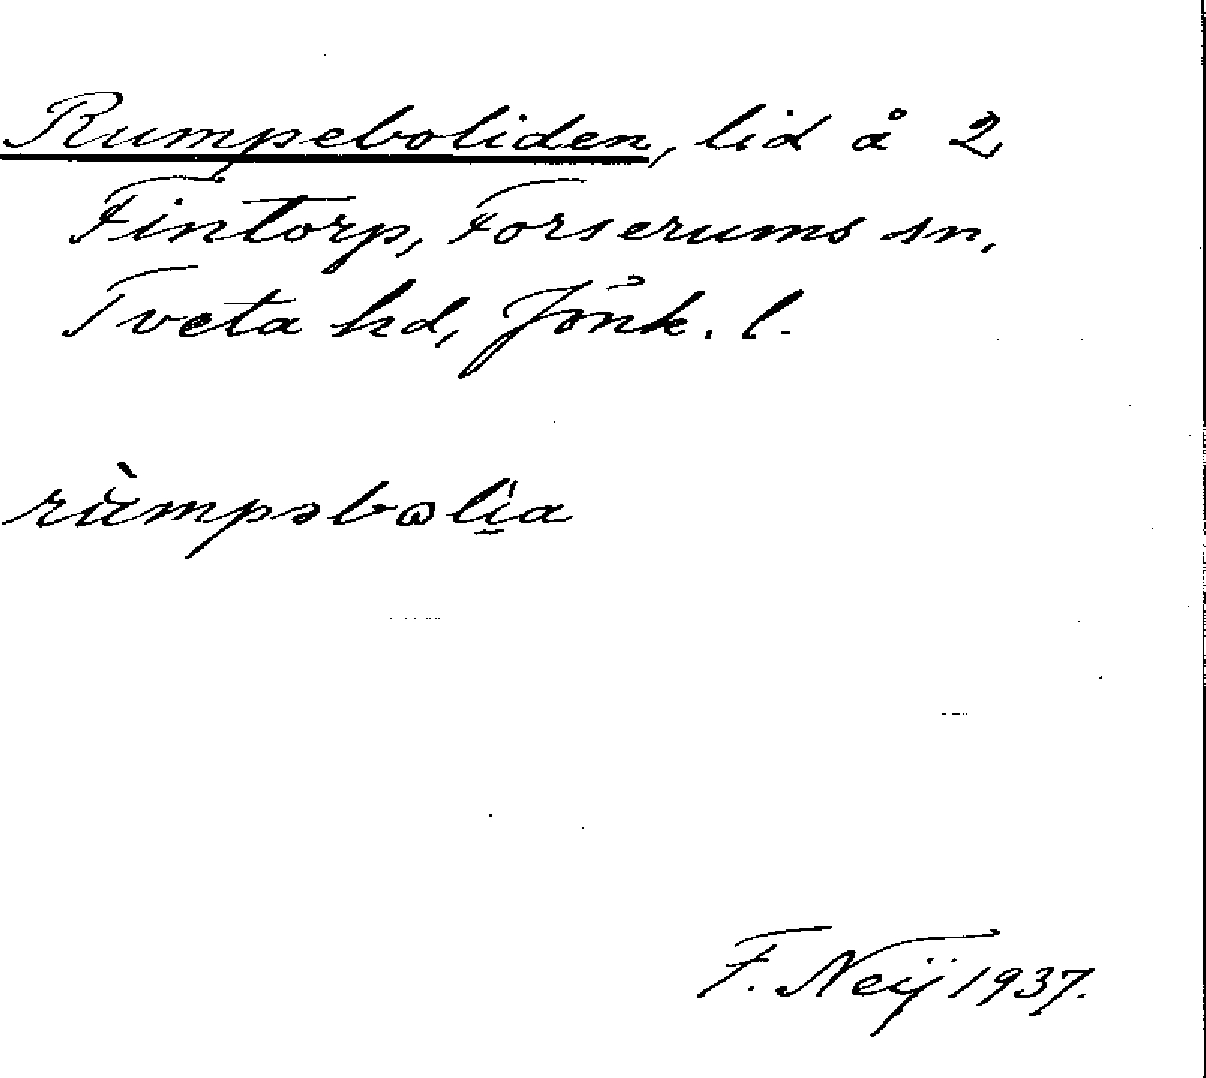 Rumpeboliden, lid å 2
Fintorp, Forserums sn,
Tveta hd, Jönk. l.
rùmpəbɷlịa
F. Neij 1937.